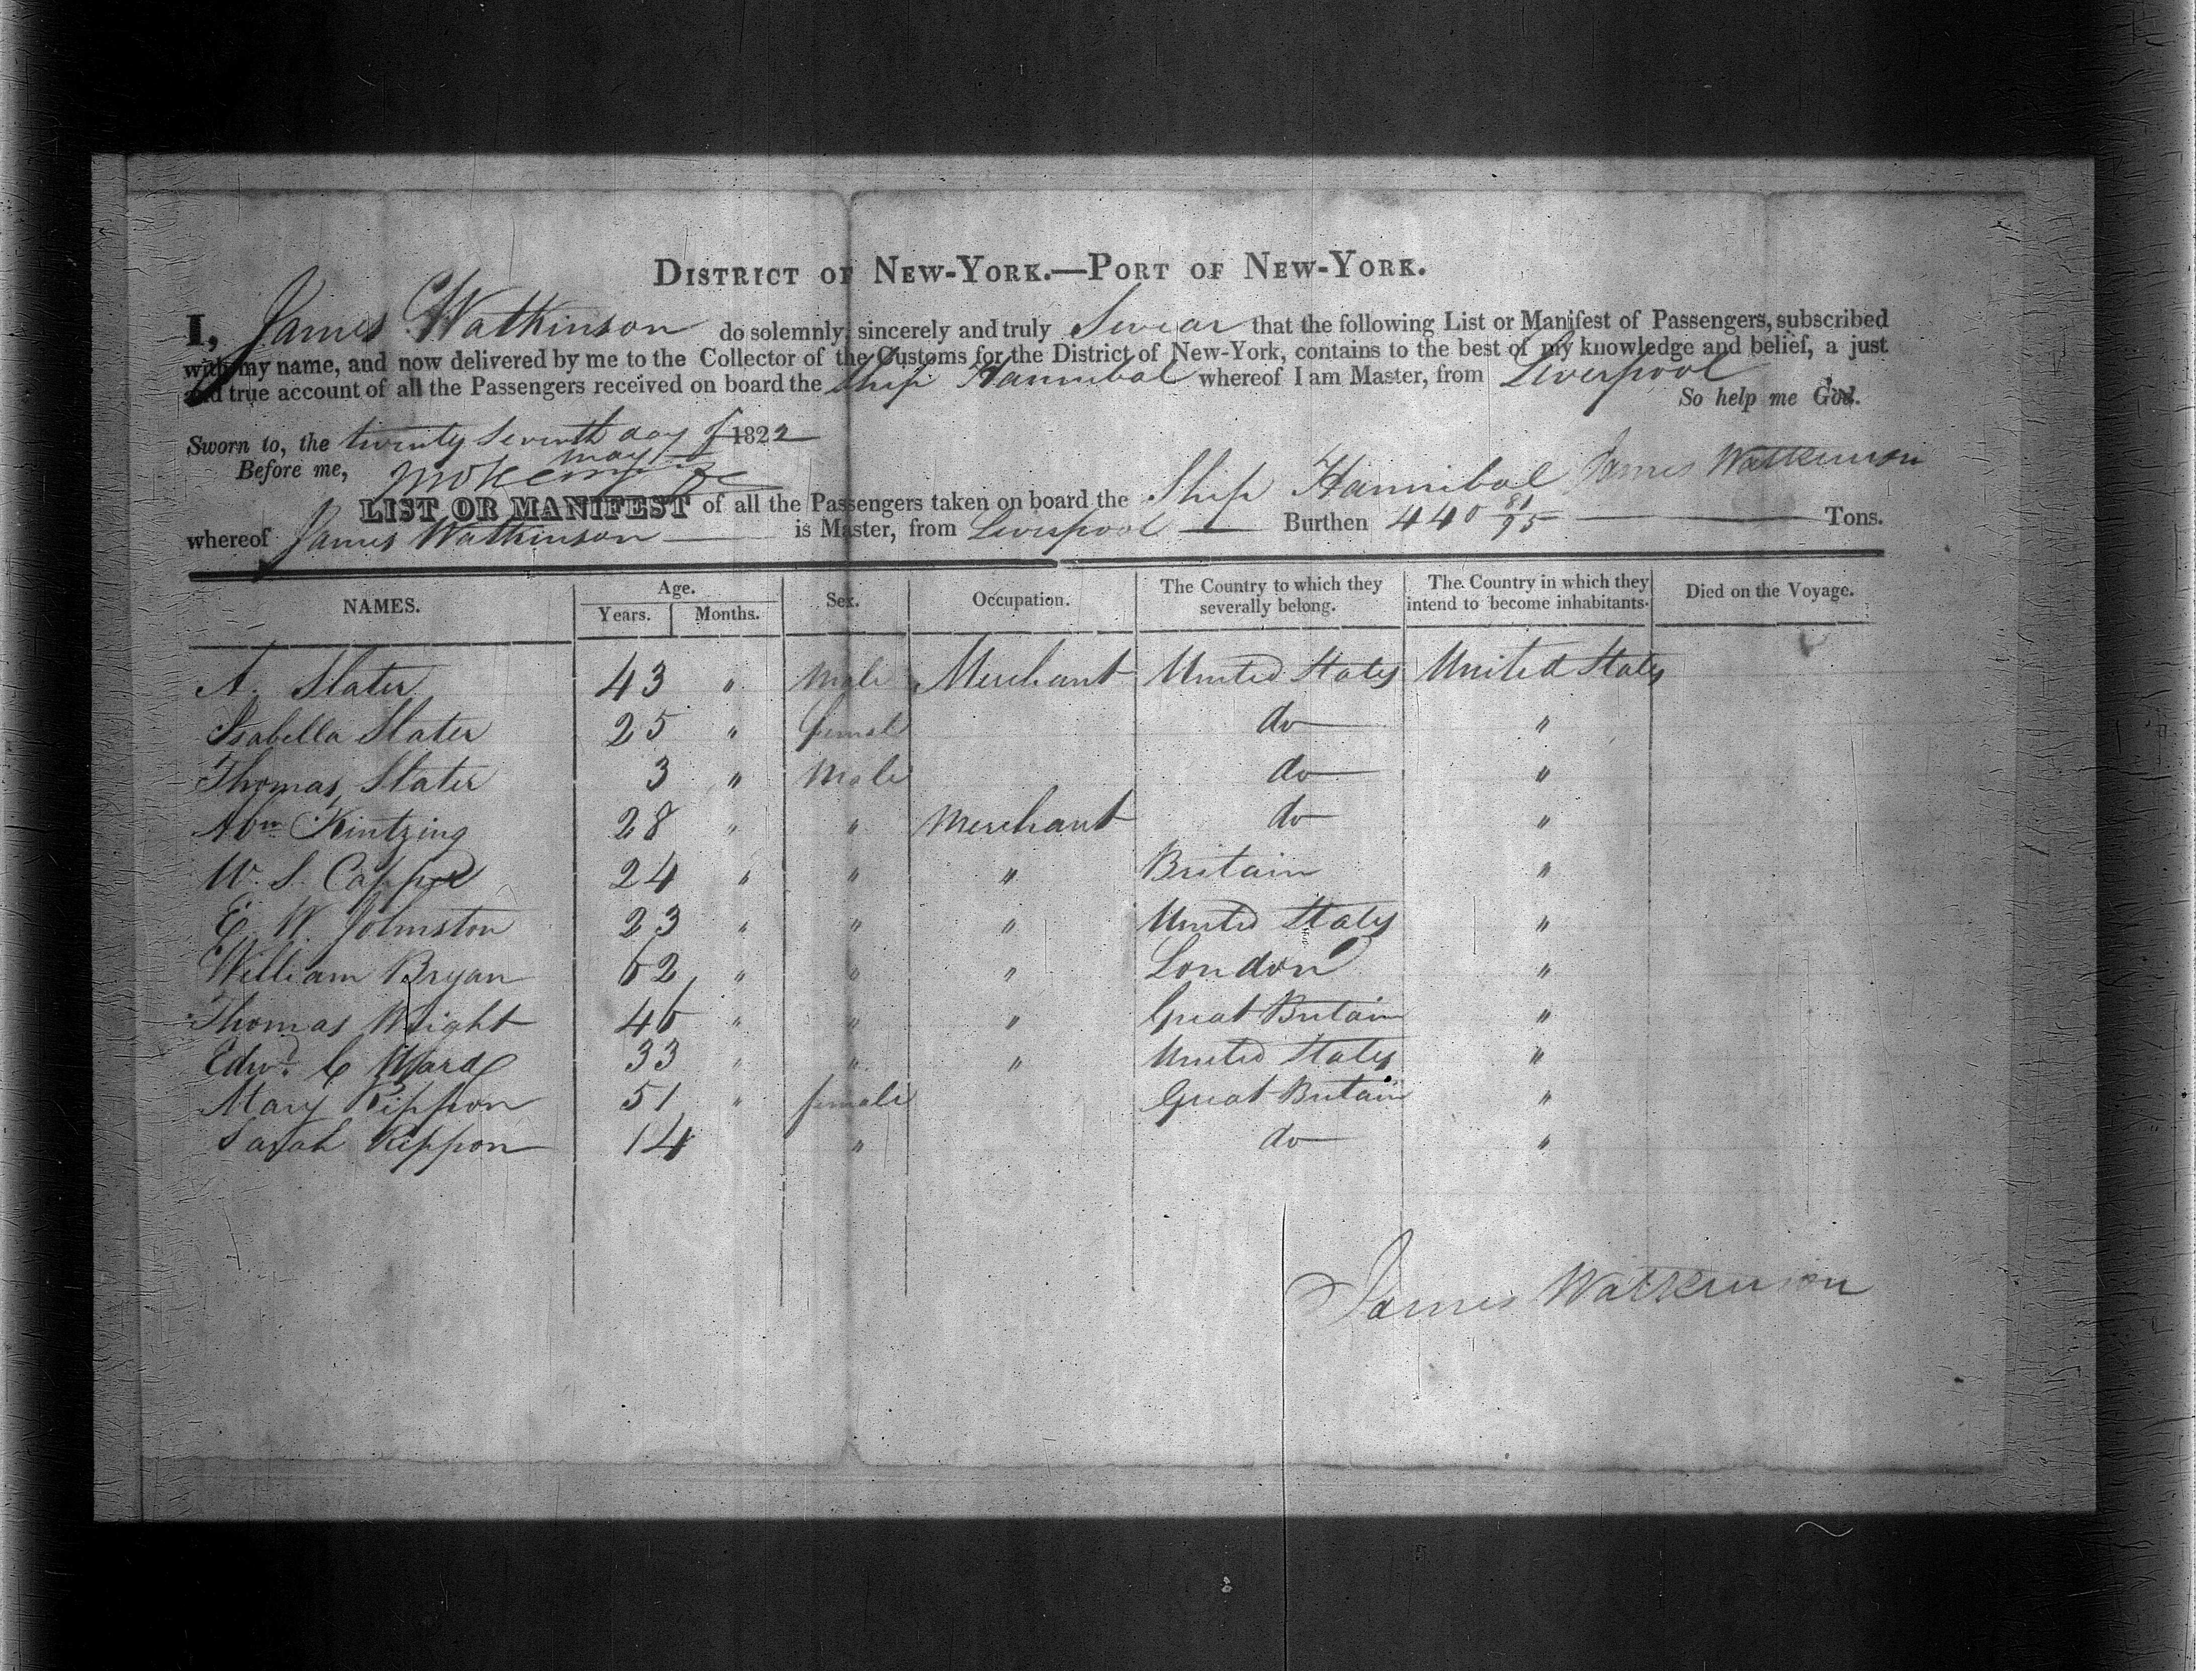 DISTRICT OF NEW-YORK.—PORT OF NEW-YORK.
I, James Watkinson do solemnly, sincerely and truly Swear that the following List or Manifest of Passengers, subscribed
with my name, and now delivered by me to the Collector of the Customs for the District of New-York, contains to the best of my knowledge and belief, a just
and true account of all the Passengers received on board the Ship Hannibal whereof I am Master, from Liverpool
So help me God.
Sworn to, the twenty Seventh day of 1822
may
Before me,
James Watkinson
LIST OR MANIFEST of all the Passengers taken on board the Ship Hannibal
whereof James Watkinson — is Master, from Liverpool — Burthen 440 81/95 — Tons.
NAMES. Age. Years. Months. Sex. Occupation. The Country to which they severally belong. The Country in which they intend to become inhabitants. Died on the Voyage.
A. Slater 43 " Male Merchant United States United States
Isabella Slater 25 " female do "
Thomas Slater 3 " Male do "
Abm Kintzing 28 " " Merchant do "
W. S. Capper 24 " " " Britain "
E. W. Johnston 23 " " " United States "
William Bryan 62 " " " London "
Thomas Wright 46 " " " Great Britain "
Edwd. C Ward 33 " " " United States "
Mary Rippon 51 " female Great Britain "
Sarah Rippon 14 " do "
James Watkinson